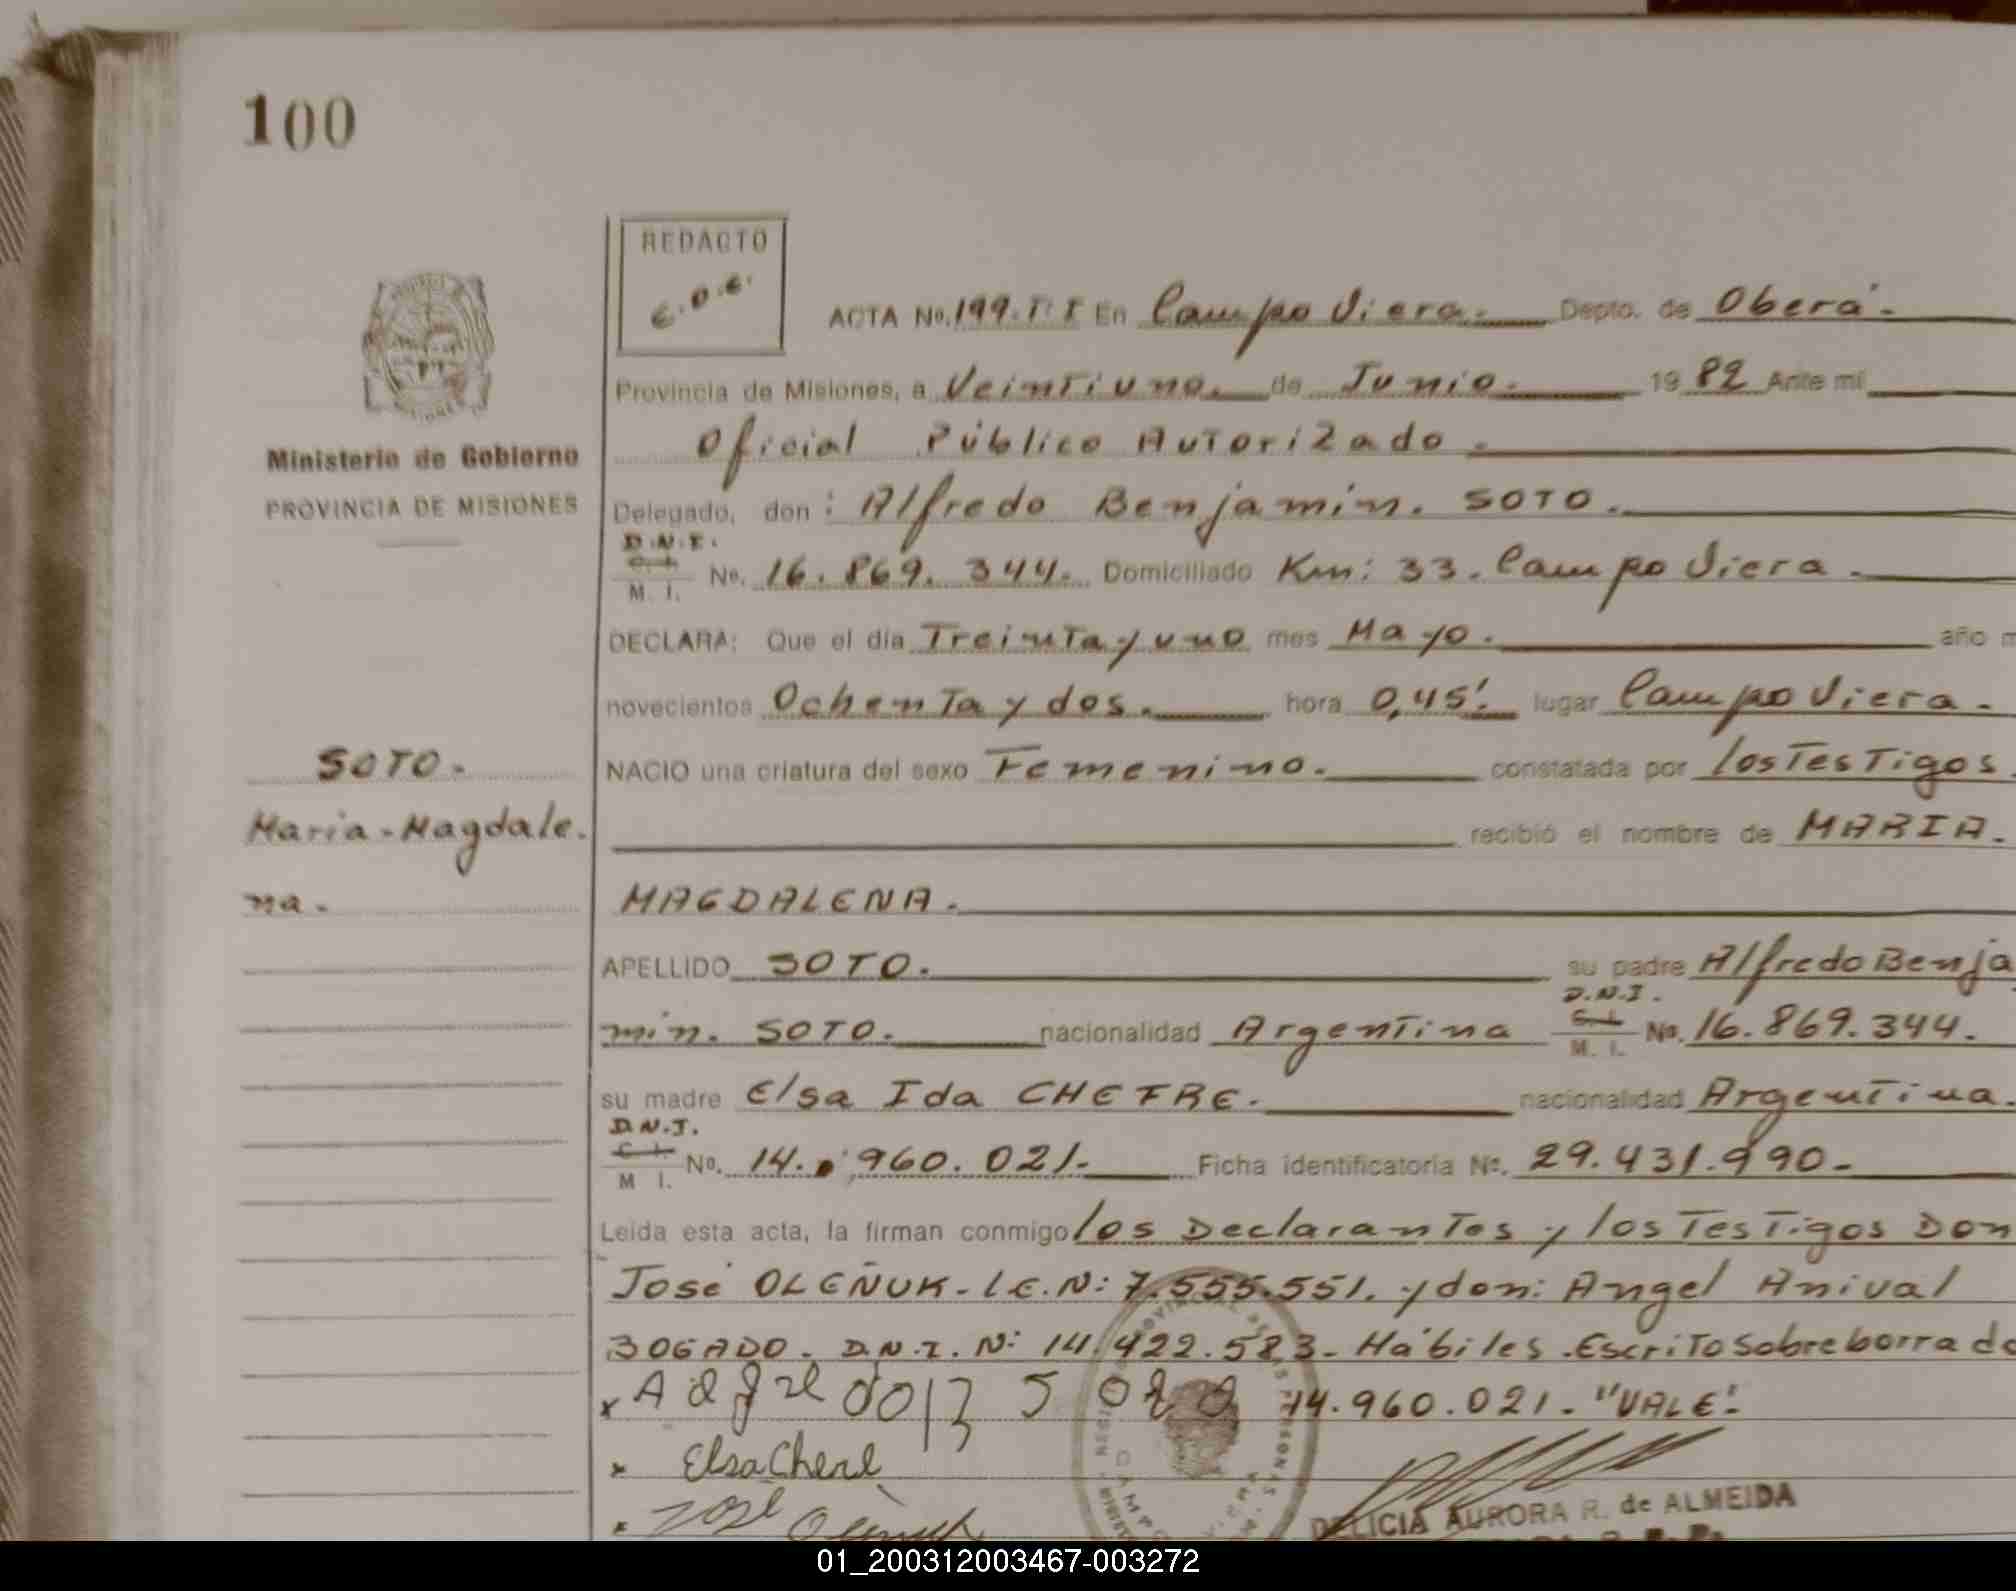 100
REDACTO
E.D.E.
ACTA No. 199. T: I En Campo Viera. Depto. de Oberá.
Provincia de Misiones, a Veintiuno. de Junio. 19 82 Ante mí
Oficial Público Autorizado.
Ministerio de Gobierno
PROVINCIA DE MISIONES
Delegado, don: Alfredo Benjamín. SOTO.
D.N.I.
C. I.
M. I.
No. 16.869.344. Domiciliado Km: 33. Campo Viera.
DECLARA: Que el día Treinta y uno mes Mayo. año
novecientos Ochenta y dos. hora 0,45'. lugar Campo Viera.
NACIO una criatura del sexo Femenino. constatada por los Testigos.
SOTO.
Maria-Magdale.
na.
recibió el nombre de MARIA.
MAGDALENA.
APELLIDO SOTO. su padre Alfredo Benja
D.N.I.
mín. SOTO. nacionalidad Argentina C. I. No. 16.869.344.
M. I.
su madre Elsa Ida CHEFRE. nacionalidad Argentina.
D.N.I.
C. I.
M I.
No. 14. 960.021.- Ficha identificatoria No. 29.431.990-
Leída esta acta, la firman conmigo los Declarantes y los Testigos Don
José OLEÑUK- L.E.N: 7.555.551. y don: Angel Anival
BOGADO. D.N.I. N: 14.422.583- Hábiles. Escrito sobre borrado
14.960.021. "VALE".
x Elsa Chere
x José
DELICIA AURORA R. de ALMEIDA
01_200312003467-003272